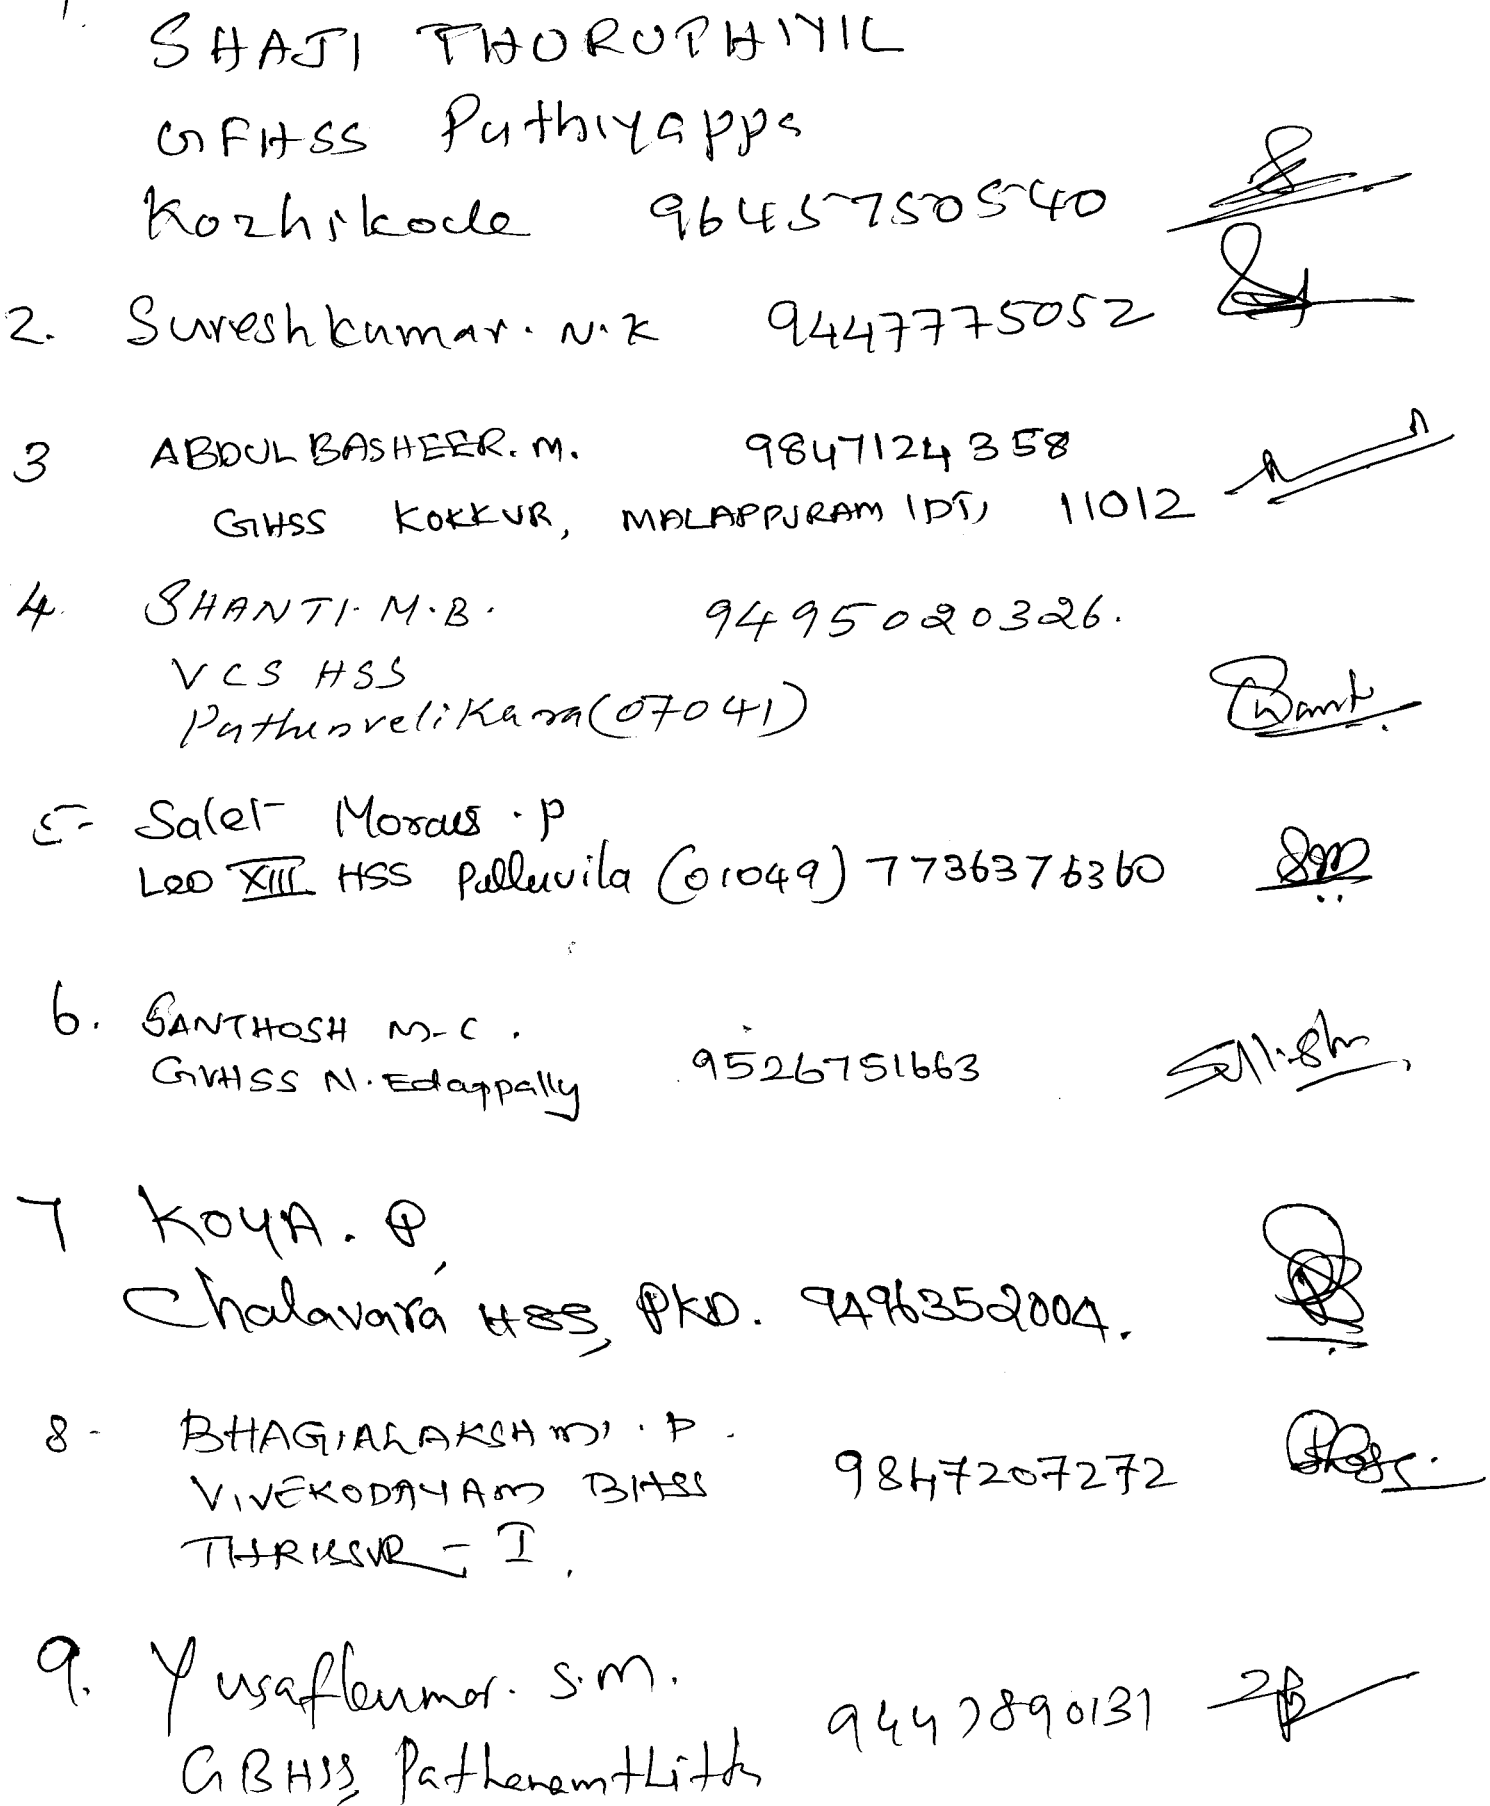 1.
SHAJI THORUPHIYIL
GFHSS Puthiyappa
Kozhikode 9645750540
2. Sureshkumar. N.K 9447775052
3 ABDUL BASHEER. M. 9847124358
GHSS KOKKUR, MALAPPURAM (DT), 11012
4. SHANTI. M.B. 9495020326.
VCS HSS
Puthenvelikara (07041)
5- Salet Morais . P
LEO XIII HSS Pulluvila (01049) 7736376360
6. SANTHOSH M-C.
GVHSS N. Edappally 9526751663
7 KOYA. P
Chalavara HSS, PKD. 9496352004.
8- BHAGIALAKSHMI. P.
VIVEKODAYAM BHSS 9847207272
THRISSUR - I.
9. Yusafkumar. S.M.
GBHSS, 9447890131